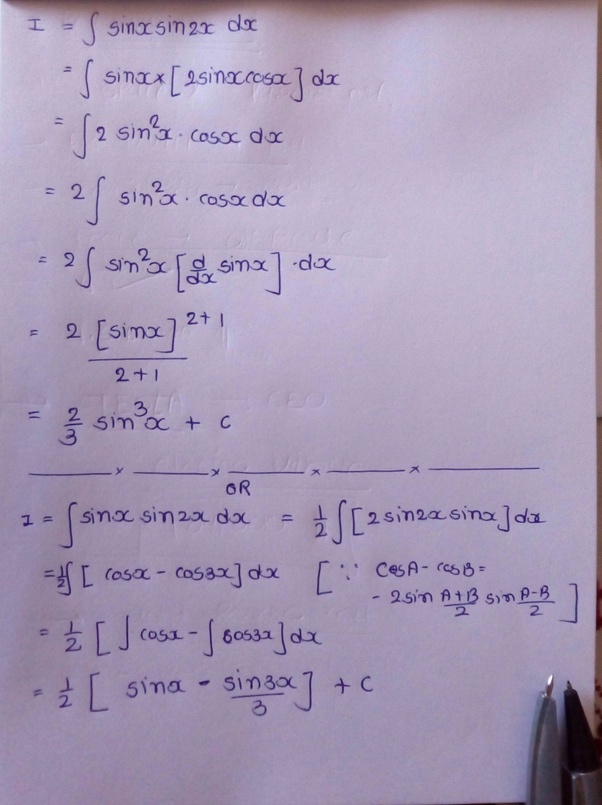 I = ∫ sinx sin2x dx
= ∫ sinx × [2sinxcosx] dx
= ∫ 2 sin²x · cosx dx
= 2 ∫ sin²x · cosx dx
= 2 ∫ sin²x [d/dx sinx] · dx
= 2 [sinx]^2+1 / 2+1
= 2/3 sin³x + c
OR
I = ∫ sinx sin2x dx = 1/2 ∫ [2sin2x sinx] dx
= 1/2 ∫ [cosx - cos3x] dx [∵ cosA - cosB = - 2sin A+B/2 sin A-B/2]
= 1/2 [∫ cosx - ∫ cos3x] dx
= 1/2 [sinx - sin3x/3] + c